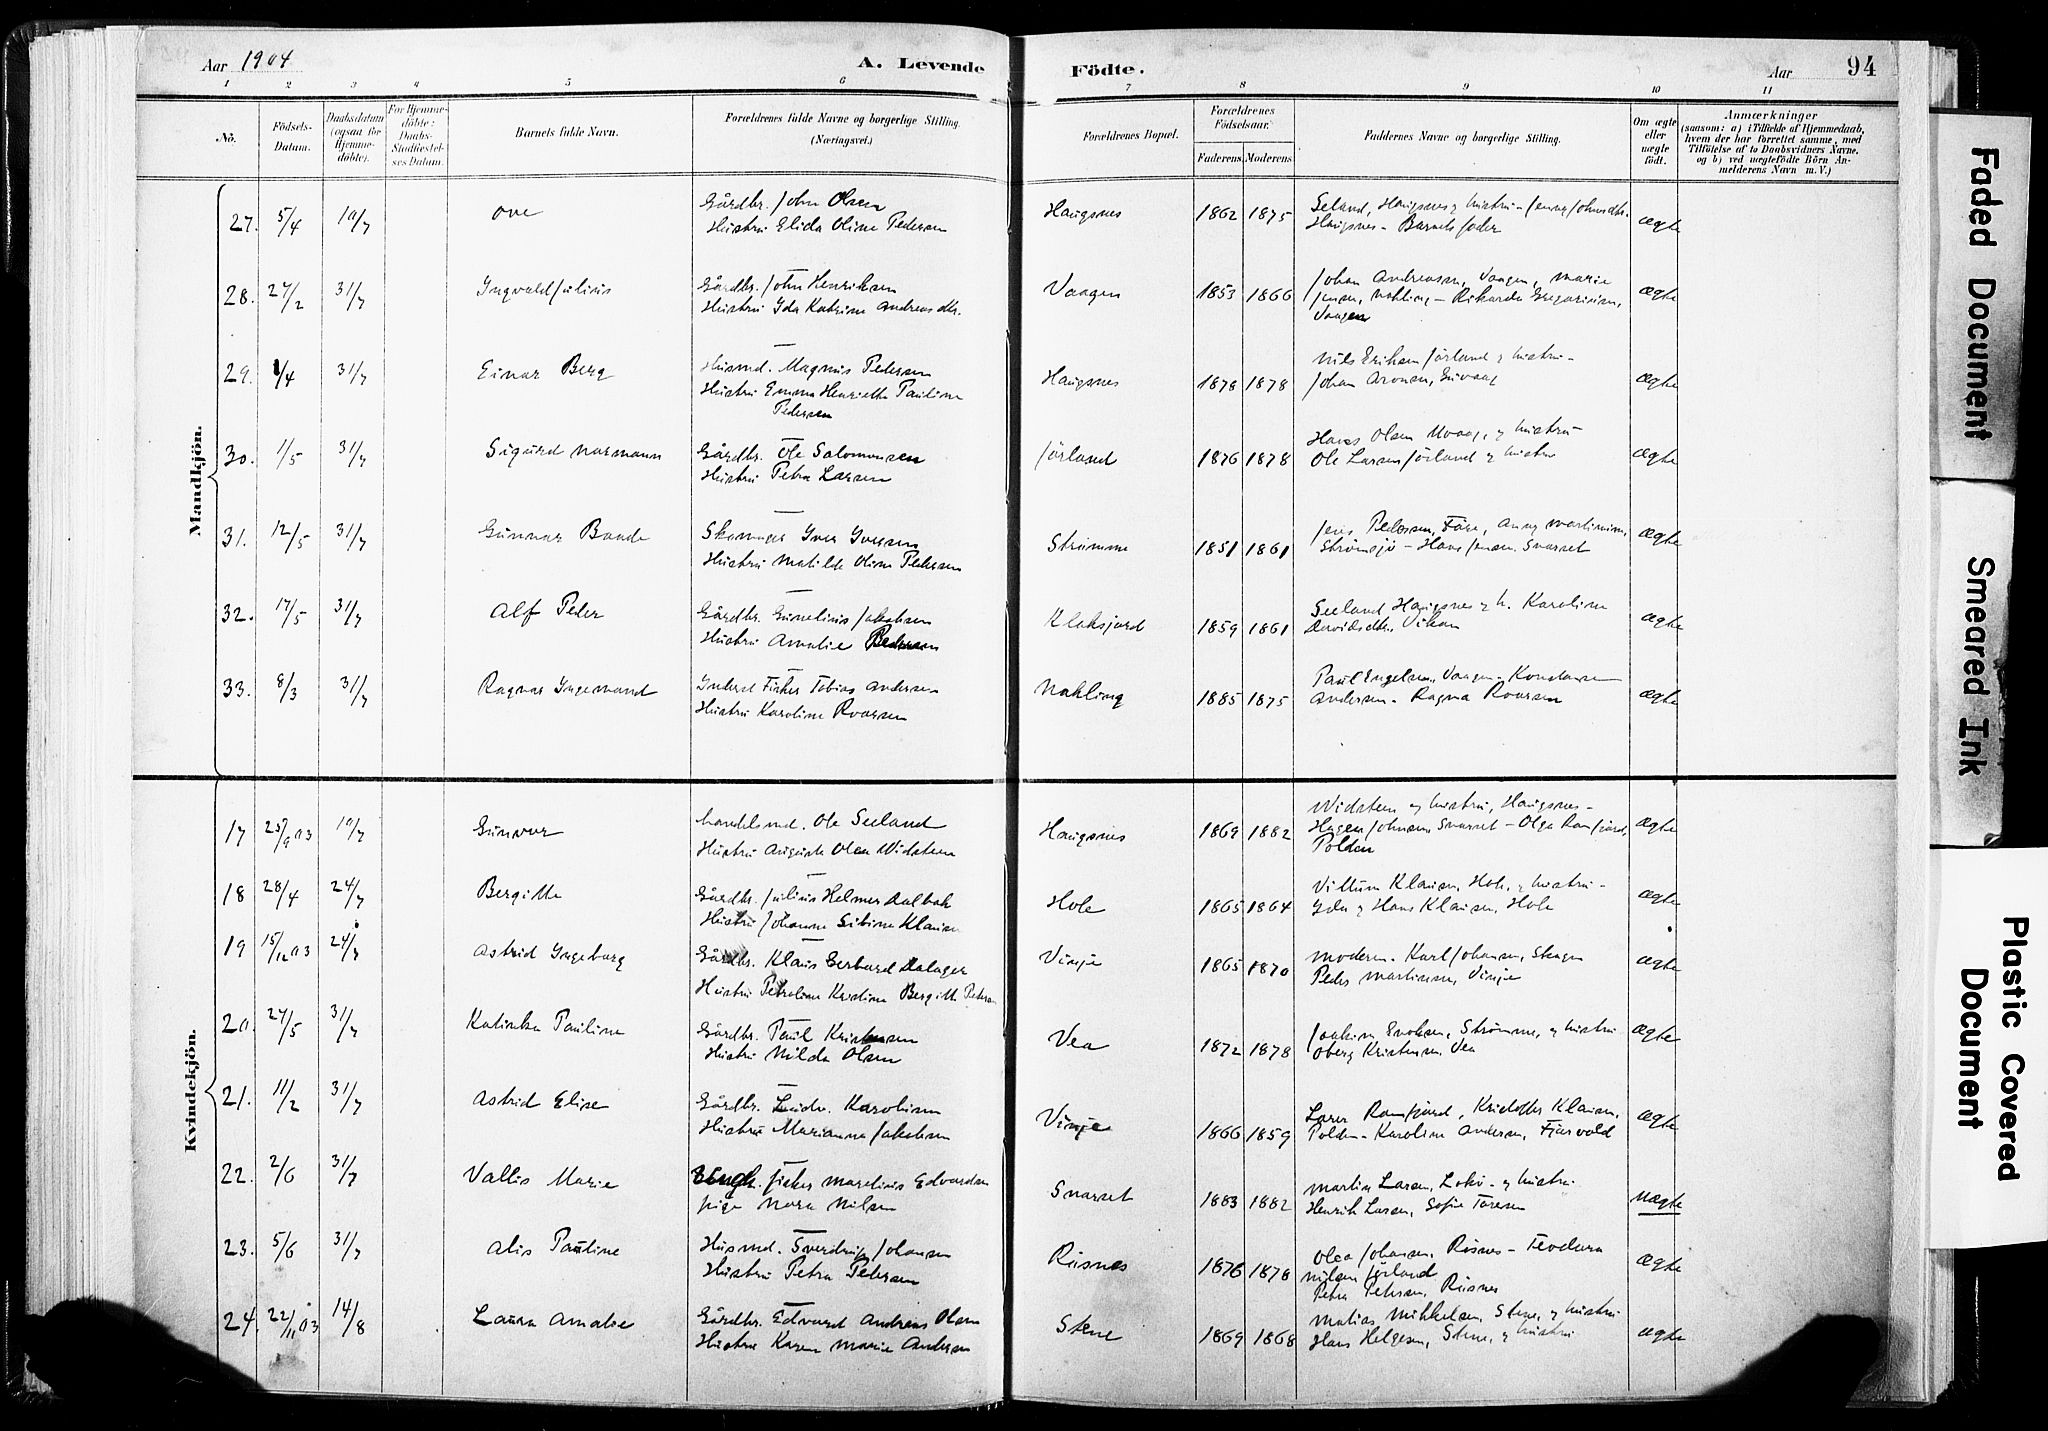 Aar 1904
A. Levende
Födte.
Aar
94
1 2 3 4 5 6 7 8 9 10 11
No.
Födsels-Datum.
Daabsdatum (ogsaa for Hjemme-döbte).
For Hjemme-döbte: Daabs-Stadfæstel-ses Datum.
Barnets fulde Navn.
Forældrenes fulde Navne og borgerlige Stilling. (Næringsvei.)
Forældrenes Bopæl.
Forældrenes Födselsaar.
Faderens Moderens
Faddernes Navne og borgerlige Stilling.
Om ægte eller uægte födt.
Anmærkninger
(saasom: a) i Tilfælde af Hjemmedaab, hvem der har forrettet samme, med Tilföielse af to Daabsvidners Navne. og b) ved uægtefödte Börn An-melderens Navn m. V.)
Mandkjön.
27. 5/4 10/7 Ove Gårdbr. Johan Olsen Haugsnes 1862 1875 Seland, Haugsnes & hustru - Jenny Johnsdtr. ægte
Hustru Elida Oline Pedersen Haugsnes - Barnets fader
28. 27/2 31/7 Ingvald Julius Gårdbr. John Henriksen Vaagen 1853 1866 Johan Andreassen, Vaagen, Marie ægte
Hustru Ida Katrine Andreasdtr. Jensen, Nakling - Rikarda Gregoriusen,
Vaagen
29. 1/4 31/7 Einar Berg Husmd. Magnus Pedersen Haugsnes 1878 1878 Nils Eriksen Jörland & hustru - ægte
Hustru Emma Henriette Pauline Johan Aronsen,
Pedersen
30. 1/5 31/7 Sigurd Normann Gårdbr. Ole Salomonsen Jörland 1876 1878 Hans Olsen & hustru - ægte
Hustru Petra Larsen Ole Larsen Jörland & hustru
31. 12/5 31/7 Gunnar Bonde Skomager Iver Iversen Strömme 1851 1861 Jens Pedersen, Före, Anna Martinsen, ægte
Hustru Matilde Oline Pedersen Strömsjö - Hans Jensen. Snarset
32. 17/5 31/7 Alf Peder Gårdbr. Gunelius Jakobsen Klaksjord 1859 1861 Seeland Haugsnes & h. Karoline ægte
Hustru Amalie Pedersen Davidsdtr., Vikan
33. 8/3 31/7 Ragnar Ingemand Inderst Fisker Tobias Andersen Nakling 1885 1875 Paul Engelsen, Vaagen - Konstanse ægte
Hustru Karoline Roarsen Andersen - Ragna Roarsen
Kvindekjön.
17 25/9 03 10/7 Gunvor Handelsmd. Ole Seeland Haugsnes 1869 1882 Widsteen og hustru, Haugsnes - ægte
Hustru Auguste Olea Widsteen Hagen Johnsen, Snarset - Olga Ramfjord,
Polden
18 28/4 24/7 Bergitte Gårdbr. Julius Helmer Dalbak Hole 1865 1864 Klausen, Hole, & hustru - ægte
Hustru Johanne Sibine Klausen Ida & Hans Klausen, Hole
19 15/12 03 24/7 Astrid Ingeborg Gårdbr. Klaus Gerhard Dalager Vinje 1865 1870 Moderen - Karl Johansen, Skagen ægte
Hustru Petroline Kristine Bergitte Petersen Peder Martinsen, Vinje
20. 27/5 31/7 Katinka Pauline Gårdbr. Paul Kristensen Vea 1872 1878 Joakim Enoksen, Strömme, og hustru ægte
Hustru Nilda Olsen Oberg Kristensen, Vea
21. 11/2 31/7 Astrid Elise Gårdbr. Ludv. Karolius Vinje 1866 1859 Lorer Ramfjord, Kristoffer Klausen, ægte
Hustru Marianna Jakobsen Polden - Karoline Andersen, Fjærvold
22. 2/6 31/7 Vallis Marie Ungk. fisker Marelius Edvardsen Snarset 1883 1882 Martin Larsen, Lokö - og hustru - uægte
pige Nora Nilsen Henrik Larsen, Sofie Toresen
23. 5/6 31/7 Alis Pauline Husmd. Sverdrup Johansen Risnes 1876 1878 Olea Johansen, Risnes - Teodora ægte
Hustru Petra Petersen Nilsen Jörland
Petra Petersen, Risnes
24. 22/11 03 14/8 Laura Amalie Gårdbr. Edvard Andreas Olsen Stene 1869 1868 Matias Mikkelsen, Stene, & hustru ægte
Hustru Karen Marie Andersen Hans Helgesen, Stene, & hustru
Faded Document
Smeared Ink
Plastic Covered
Document